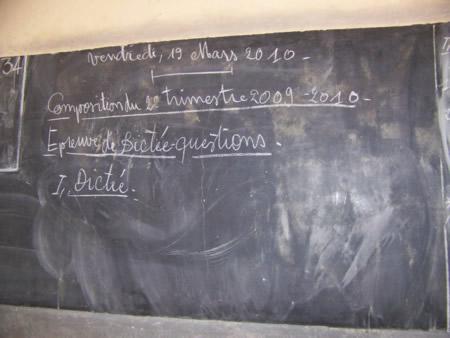 Vendredi, 19 Mars 2010.
34
Composition du 2e trimestre 2009-2010.
Epreuve de Dictée-questions.
I, Dictée.